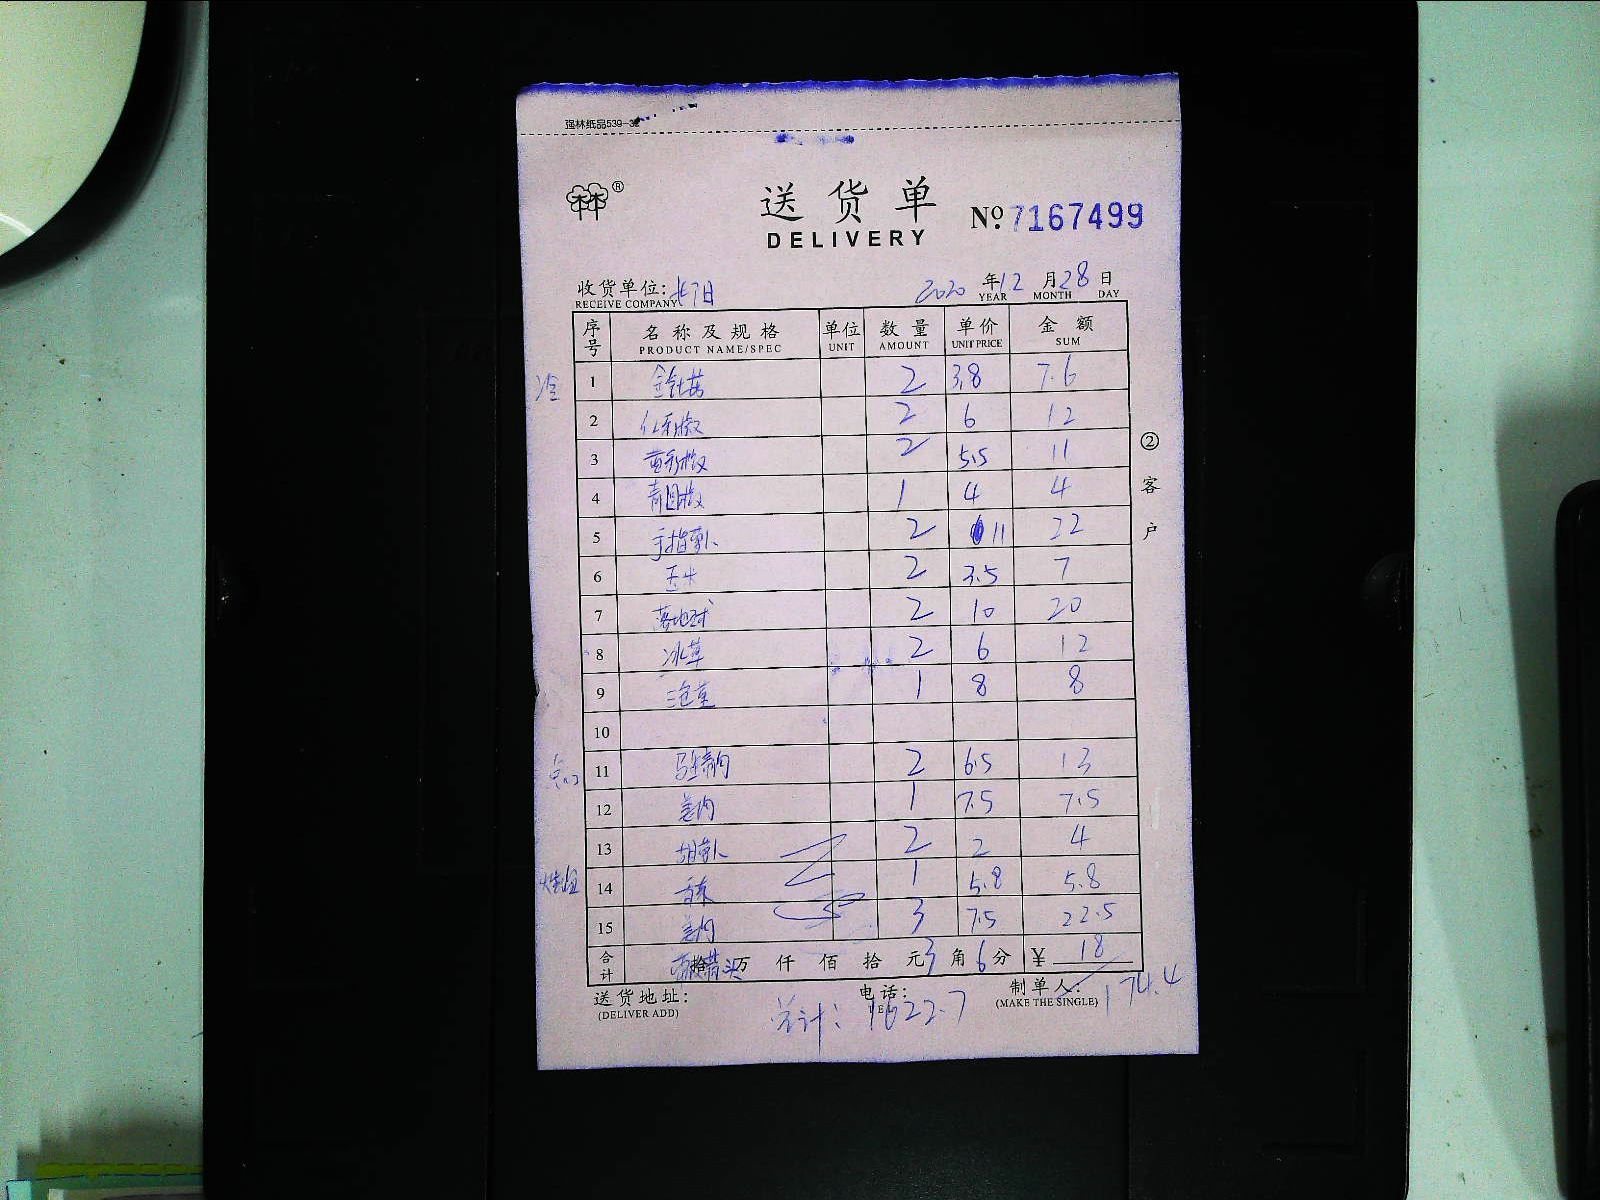 强林纸品539-32
林林®
送货单
DELIVERY
No. 7167499
收货单位:
RECEIVE COMPANY
2020 年 12 月 28 日
YEAR MONTH DAY
序号 名称及规格 单位 数量 单价 金额
PRODUCT NAME/SPEC UNIT AMOUNT UNIT PRICE SUM
冷 1 金针菇 2 3.8 7.6
2 红彩椒 2 6 12
3 黄彩椒 2 5.5 11
4 青圆椒 1 4 4
5 手指萝卜 2 11 22
6 玉米 2 3.5 7
7 落地球 2 10 20
8 冰草 2 6 12
9 1 8 8
10
点心 11 2 6.5 13
12 1 7.5 7.5
13 胡萝卜 2 2 4
14 1 5.8 5.8
15 3 7.5 22.5
合计 拾 万 仟 佰 拾 元 3 角 6 分 ¥ 18
② 客户
送货地址:
(DELIVER ADD)
电话:
TEL
制单人:
(MAKE THE SINGLE)
174.4
总计: 1622.7